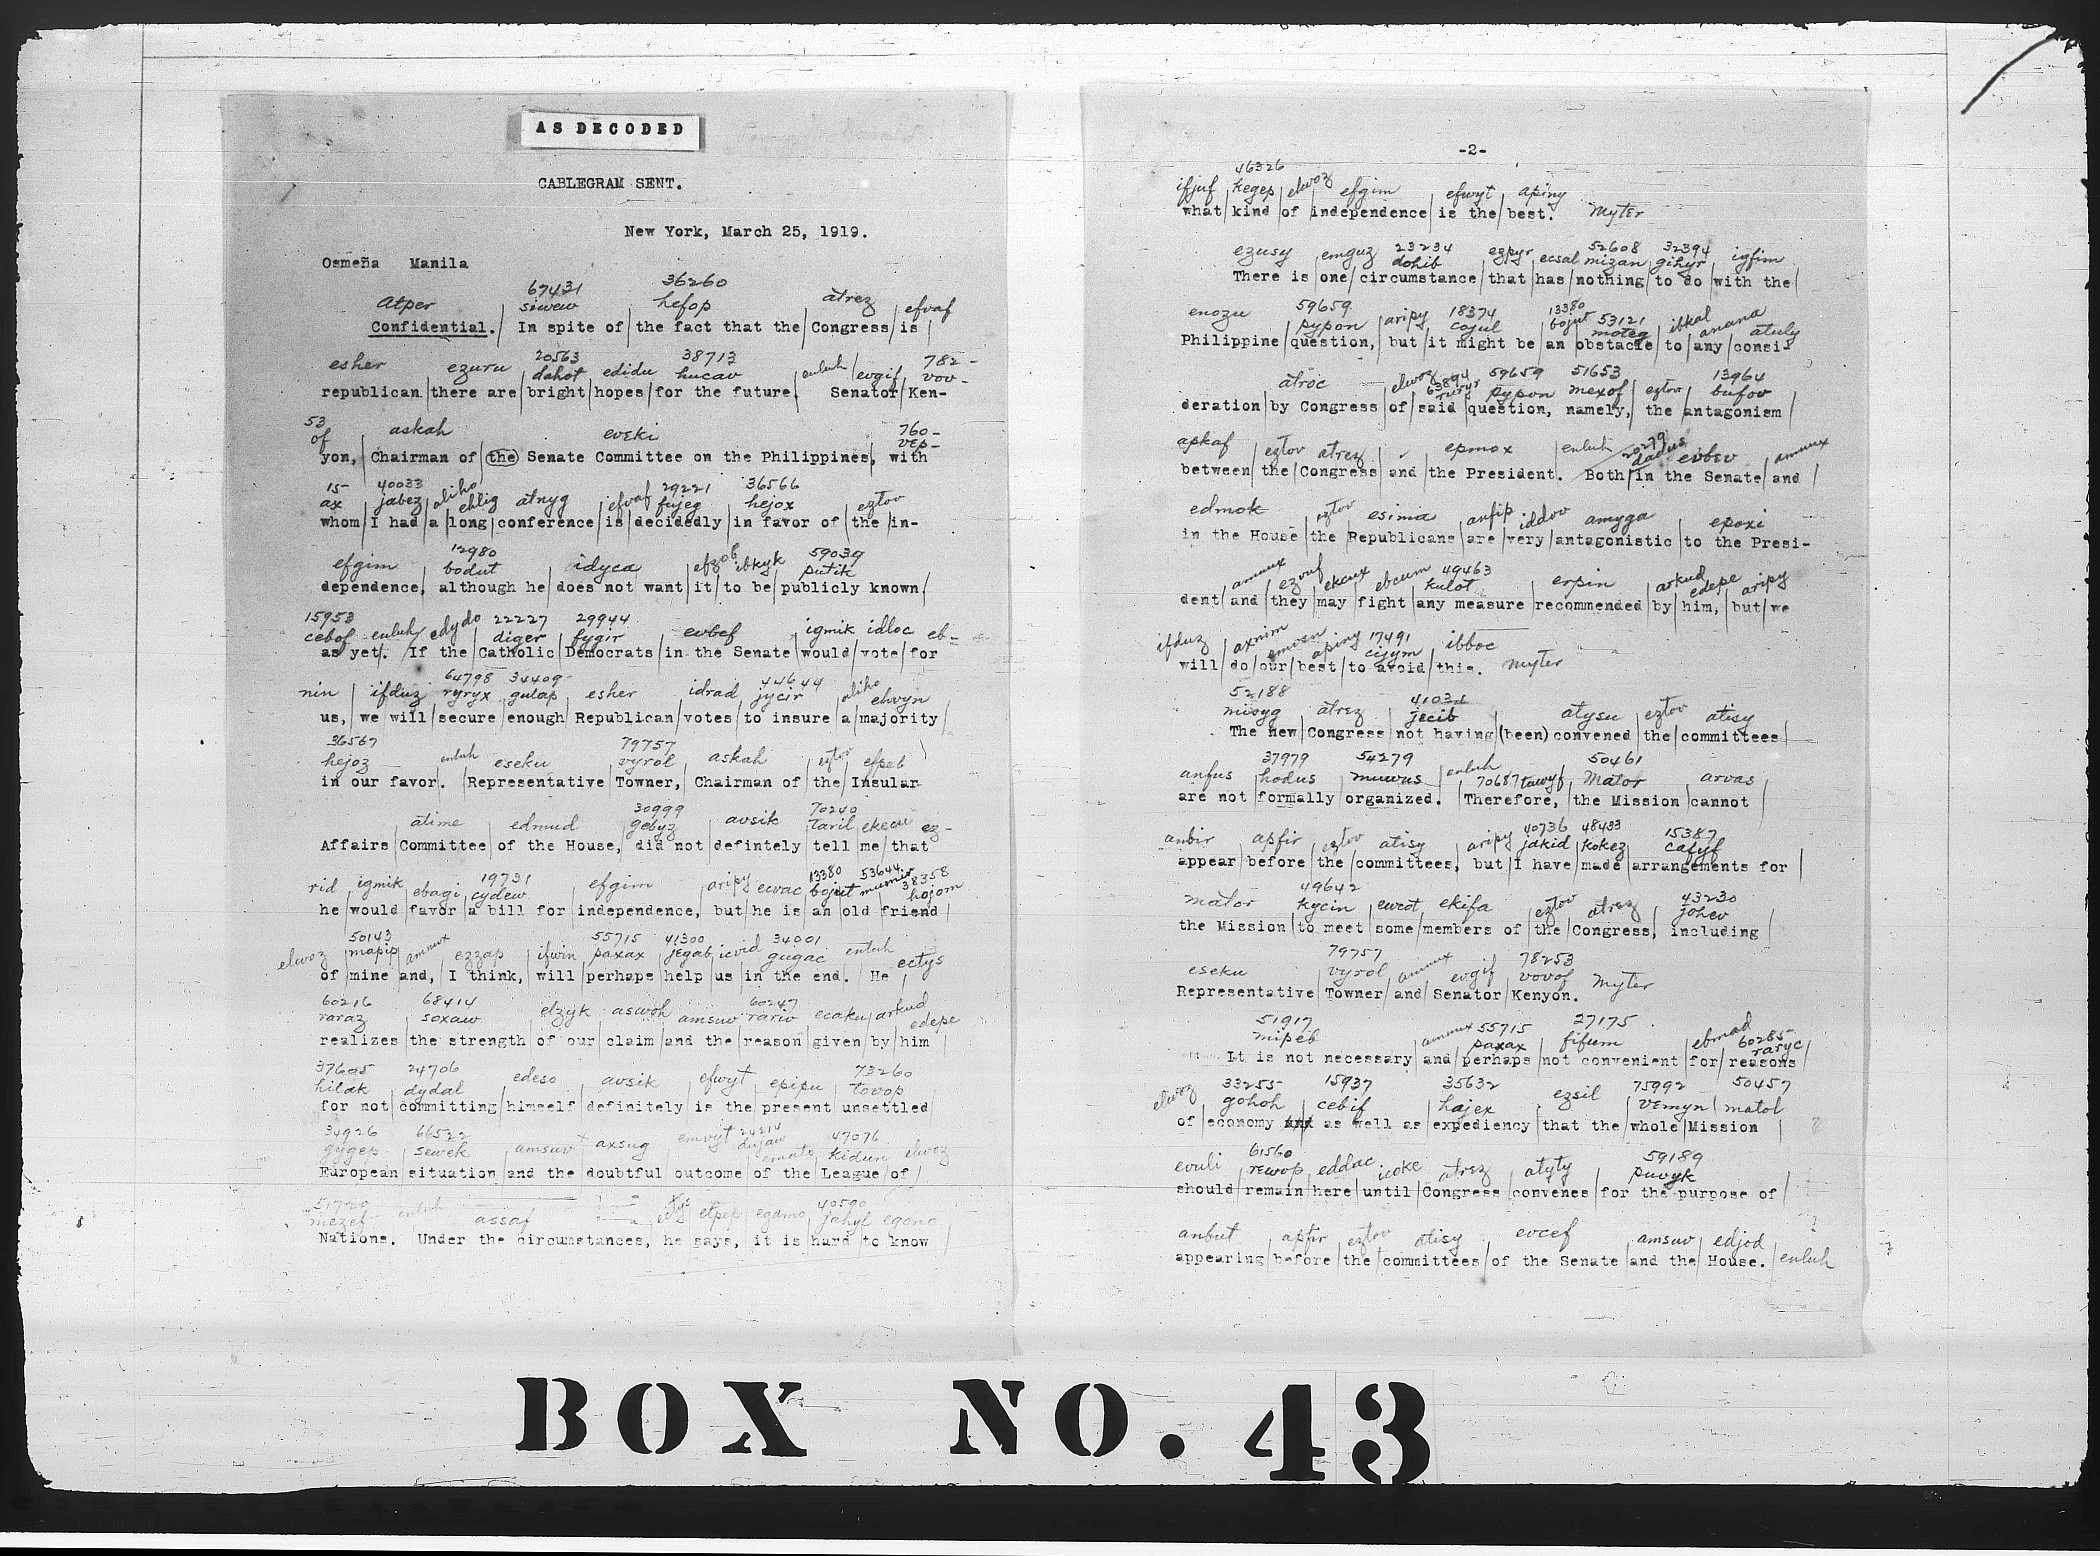 AS DECODED
CABLEGRAM SENT.
New York, March 25, 1919.
Osmeña Manila
67431 36260
atper siwew hefop atrez efvaf
Confidential. In spite of the fact that the Congress is
20563 38713 782-
esher ezuru dahot edidu hucav enluh evgif vov-
republican there are bright hopes for the future. Senator Ken-
53 760-
of askah eveki vep-
yon, Chairman of the Senate Committee on the Philippines, with
15- 40033 29221 36566
ax jabez aliho ehlig atnyg efvaf fujeg hejox eztov
whom I had a long conference is decidedly in favor of the in-
12980 59039
efgim bodut idyca efzob ibkyk putik
dependence, although he does not want it to be publicly known,
15953 22227 29944
cebof enluh edydo diger fygir evbef igmik idloc eb-
as yet. If the Catholic Democrats in the Senate would vote for
64798 34409 44644
nin ifduz ryryx gulap esher idrad jycir aliho elvyn
us, we will secure enough Republican votes to insure a majority
36567 79757
hejoz enluh eseku vyrol askah eztov efpeb
in our favor. Representative Towner, Chairman of the Insular
30999 70240
atime edmud gebyz avsik taril ekecu ez-
Affairs Committee of the House, did not defintely tell me that
19731 13380 53644 38358
rid igmik ebagi cydew efgim aripy ewac bojut mumis hojom
he would favor a bill for independence, but he is an old friend
50143 55715 41300 34001
elwoz mapip amnux ezzap ifwin paxax jegab icvid gugac enluh ectys
of mine and, I think, will perhaps help us in the end. He
60216 68414 60247
raraz soxaw elzyk aswoh amsuw rariw ecaku arkud edepe
realizes the strength of our claim and the reason given by him
37605 24706 73260
hilak dydal edeso avsik efwyt epipu tovop
for not committing himself definitely is the present unsettled
34926 66522 24214 47076
gygep sewek amsuw axsug emvyt dujaw ernato kidun elwoz
European situation and the doubtful outcome of the League of
51720 40590
mezef enluh assaf elpep egamo jahyl egone
Nations. Under the circumstances, he says, it is hard to know
-2-
46326
ifjuf kegep elwoz efgim efwyt apiny
what kind of independence is the best. myter
23234 52608 32394
ezusy emguz dohib ezpyr ecsal mizan gihyr igfim
There is one circumstance that has nothing to do with the
59659 18374 13380 53121
enozu pypon aripy cojul bojut moteg ibkal anana atuly
Philippine question, but it might be an obstacle to any consi-
63894 59659 51653 13964
atroc elwoz ruryr pypon mexof eztov bufov
deration by Congress of said question, namely, the antagonism
20279
apkaf eztov atrez epmox enluh dadus evbev amnux
between the Congress and the President. Both in the Senate and
edmok eztov esima anfip iddov amyga epoxi
in the House the Republicans are very antagonistic to the Presi-
49463
amnux ezouf ekcux ebcum kulot erpin arkud edepe aripy
dent and they may fight any measure recommended by him, but we
17491
ifduz axnim emvsn apiny cijym ibboc
will do our best to avoid this. myter
52188 41031
misyg atrez jecib atysu eztov atisy
The new Congress not having (been) convened the committees
37979 54279 50461
anfus hodus muwus enluh 70687 tawyf Mator arvas
are not formally organized. Therefore, the Mission cannot
40736 48433 15387
anbir apfir eztov atisy aripy jakid kokez cafyf
appear before the committees, but I have made arrangements for
49642 43230
mator kycin ewcot ekifa eztov atrez johev
the Mission to meet some members of the Congress, including
79757 78253
eseku vyrol amnux evgif vovof myter
Representative Towner and Senator Kenyon.
51917 55715 27175 60285
mipeb amnux paxax fifum ebmad raryc
It is not necessary and perhaps not convenient for reasons
33255 15937 35632 75992 50457
elwoz gohoh cebif hajex ezsil vemyn matol
of economy and as well as expediency that the whole Mission
61560 59189
evuli rewop eddac icoke atrez atyty puvyk
should remain here until Congress convenes for the purpose of
anbut apfir eztov atisy evcef amsuw edjod
appearing before the committees of the Senate and the House. enluh
BOX NO. 43